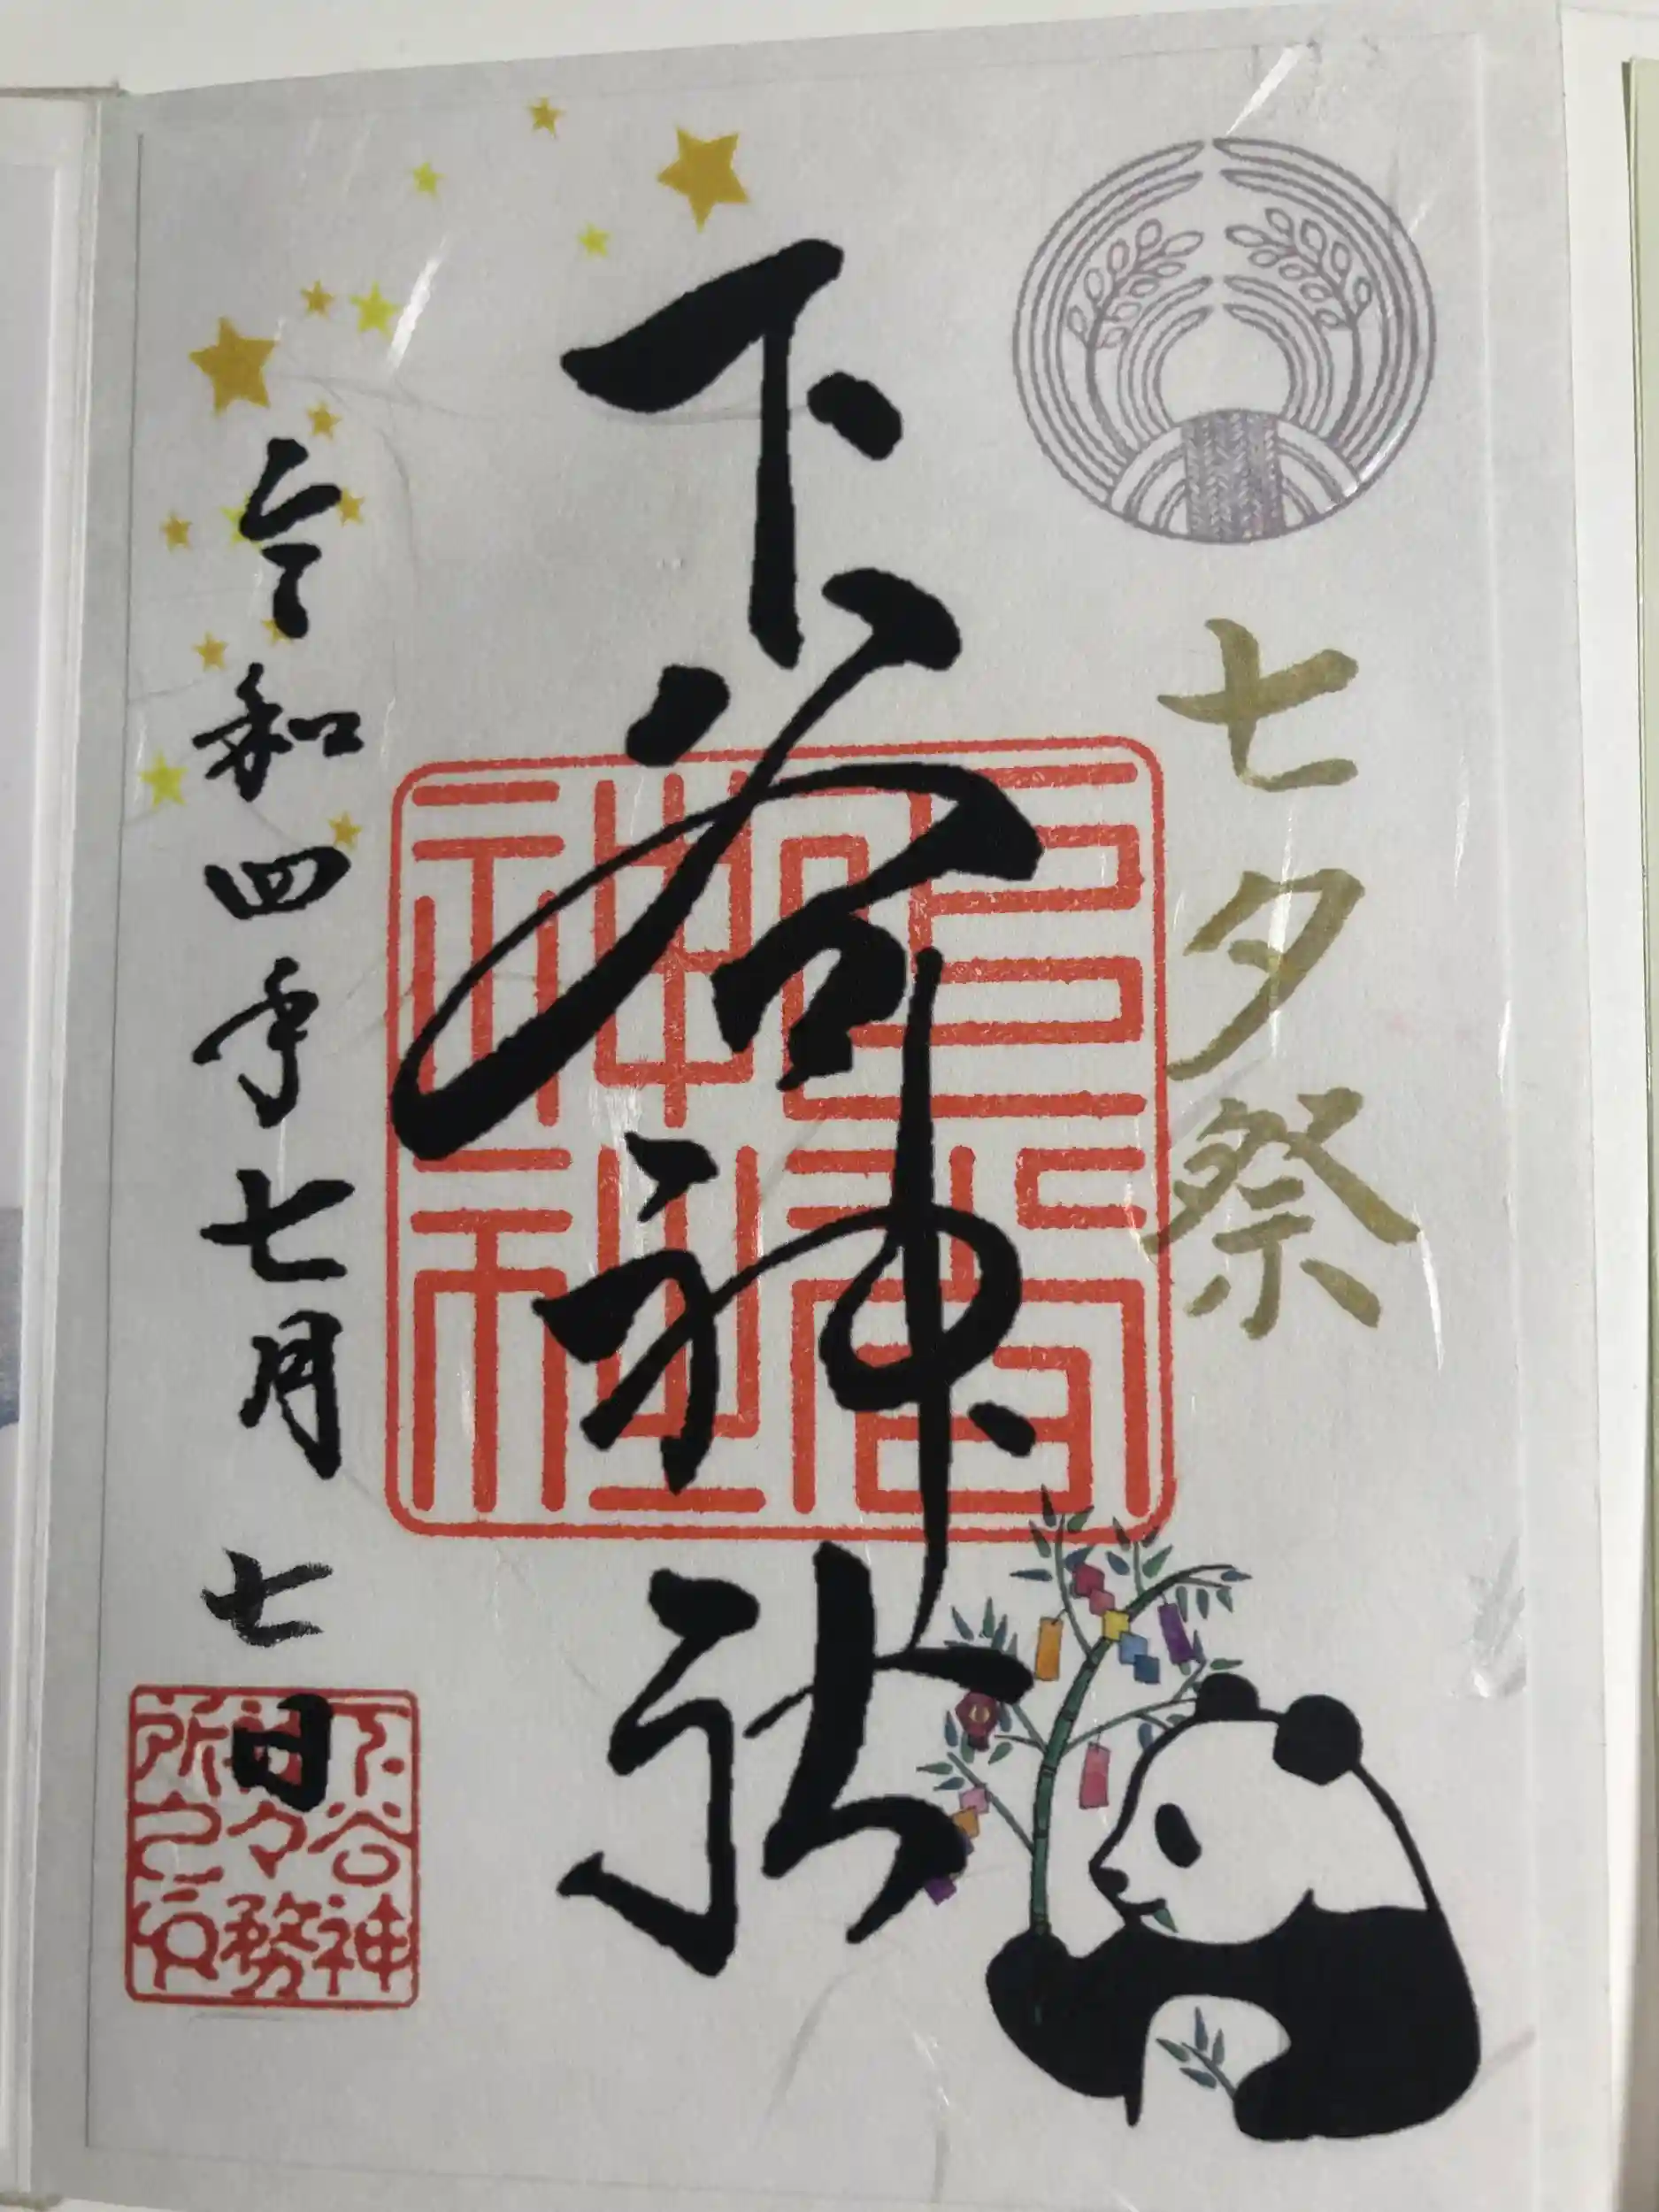 七夕祭
下谷神社
令和四年七月七日
下谷神
社々務
所之印